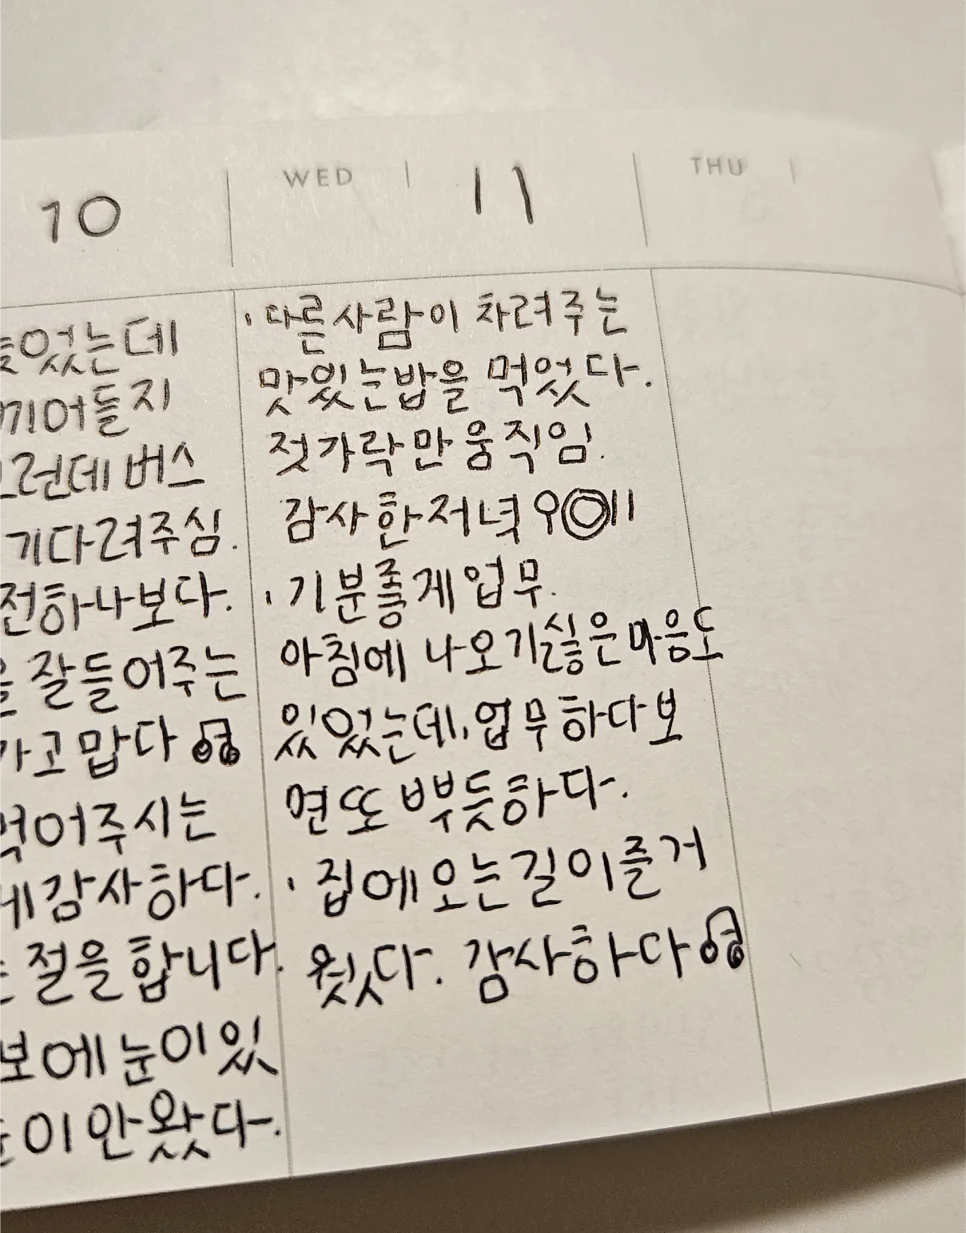 10
었는데
끼어들지
그런데 버스
기다려주심.
전하나보다.
잘들어주는
고맙다
먹어주시는
감사하다.
절을 합니다.
보에 눈이 있
이 안왔다.
WED 11
· 다른사람이 차려주는
맛있는밥을 먹었다.
젓가락만 움직임.
감사한저녁
· 기분좋게 업무.
아침에 나오기싫은 마음도
있었는데, 업무하다보
면 또 뿌듯하다.
· 집에 오는길이 즐거
웠다. 감사하다
THU